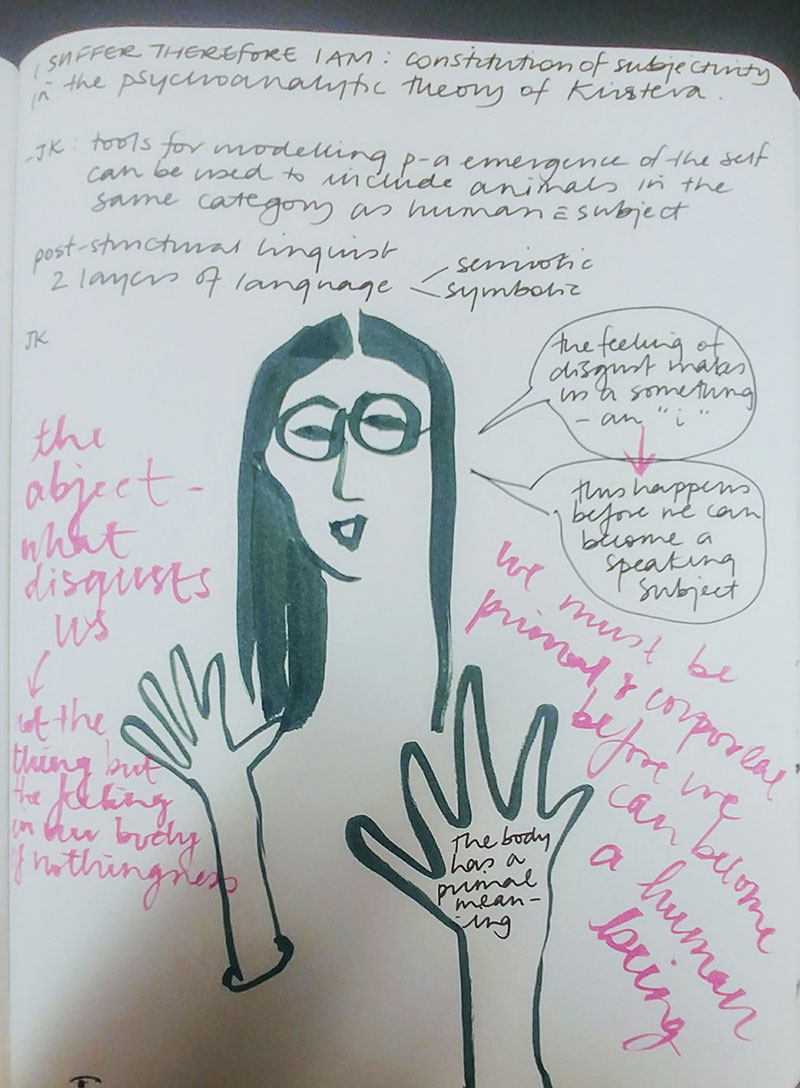 I SUFFER THEREFORE I AM: constitution of subjectivity
in the psychoanalytic theory of Kristeva.
- JK: tools for modelling p-a emergence of the self
can be used to include animals in the
same category as human = subject
post-structural linguist
2 layers of language < semiotic
symbolic
JK
the feeling of
disgust makes
us a something
- an "i"
this happens
before we can
become a
speaking
subject
the
abject -
what
disgusts
us
not the
thing but
the feeling
in our body
of nothingness
we must be
primal & corporeal
before we
can become
a human
being
The body
has a
primal
mean-
ing